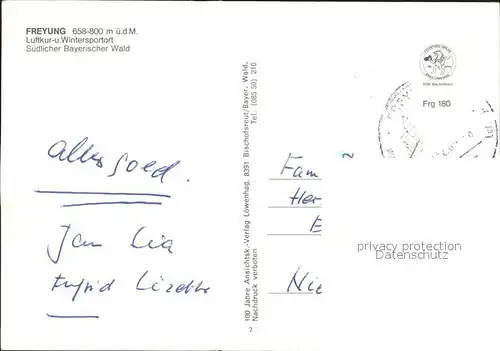 FREYUNG 658-800 m ü.d.M.
Luftkur-u.Wintersportort
Südlicher Bayerischer Wald
Alles goed.
Jan Lia
Ingrid
100 Jahre Ansichtsk.-Verlag Löwenhag, 8391 Bischofsreut/Bayer. Wald,
Nachdruck verboten
Tel. (085 50) 210
2
Frg 180
Fam
Her
E
Nie
privacy protection
Datenschutz